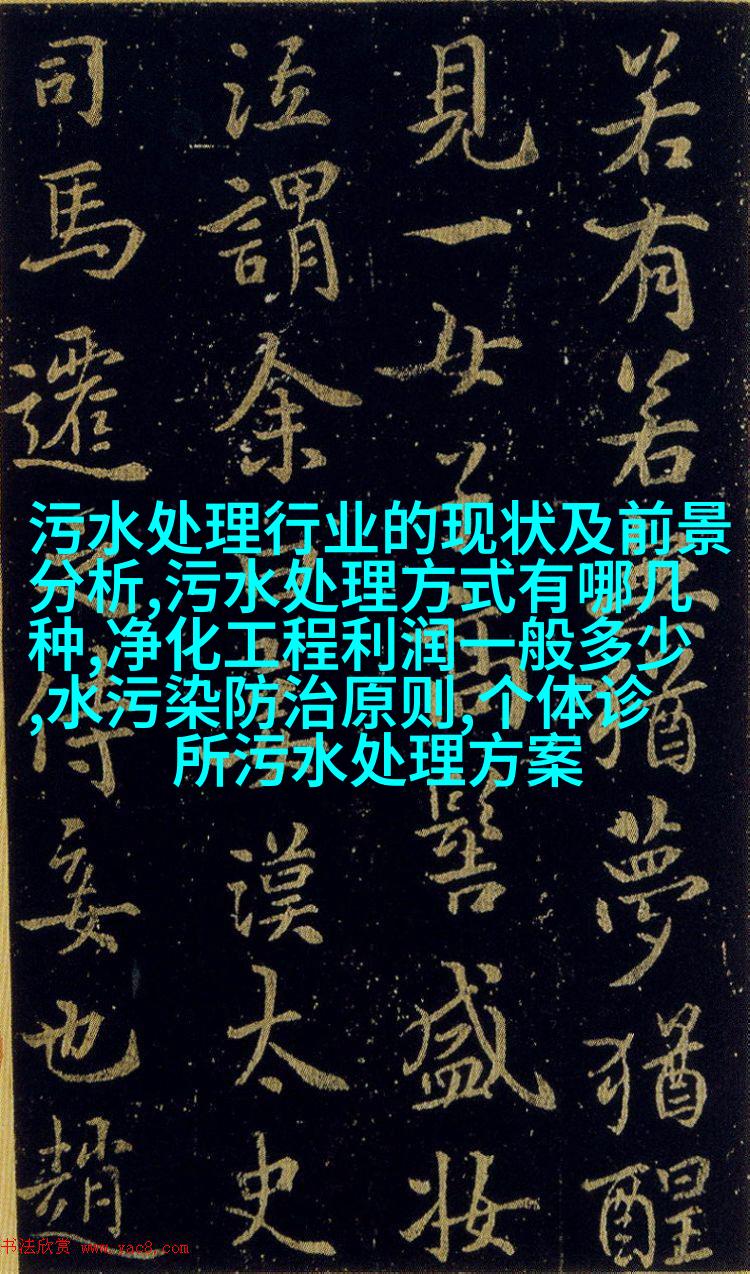 若有若猶夢猶醒
見一女子高髻盛妝
泣謂余漢太史
司馬遷之侍妾也趙
污水处理行业的现状及前景
分析,污水处理方式有哪几
种,净化工程利润一般多少
,水污染防治原则,个体诊
所污水处理方案
书法欣赏 www.yac8.com